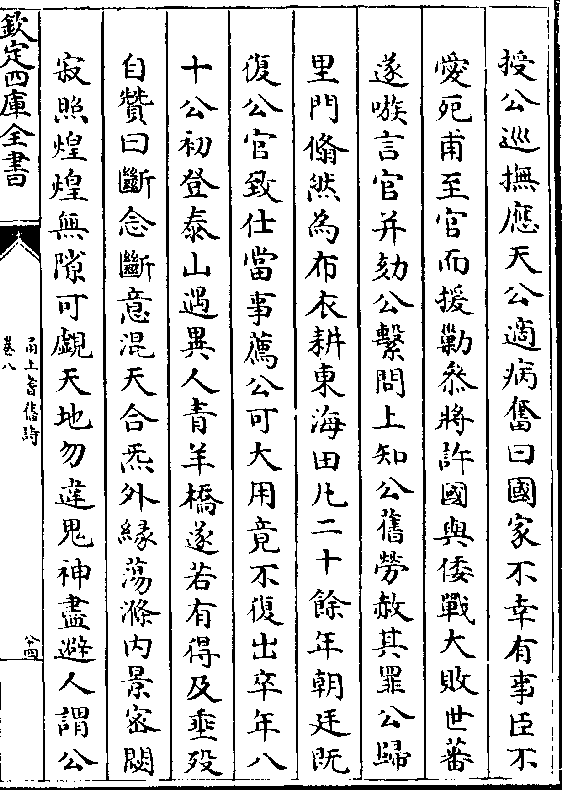 授公巡撫應天公適病奮曰國家不幸有事臣不
愛死甫至官而援勦叅將許國與倭戰大敗世蕃
遂嗾言官并劾公繫問上知公舊勞赦其罪公歸
里門翛然為布衣耕東海田凢二十餘年朝廷既
復公官致仕當事薦公可大用竟不復出卒年八
十公初登泰山遇異人青羊橋遂若有得及垂歿
自贊曰斷念斷意混天合炁外緣蕩滌内景密閟
寂照煌煌無隙可覷天地勿違鬼神盡避人謂公
欽定四庫全書
甬上耆舊詩
卷八